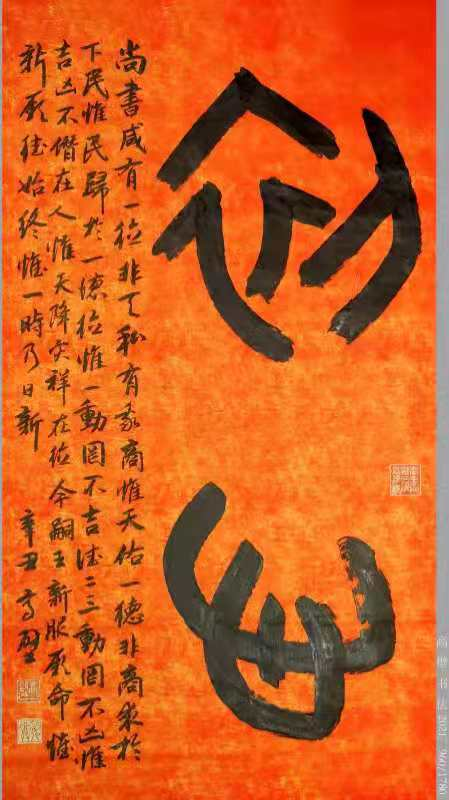 初心
尚書咸有一德非天私有我商惟天佑一德非商求於
下民惟民歸於一德德惟一動罔不吉德二三動罔不凶惟
吉凶不僭在人惟天降灾祥在德今嗣王新服厥命惟
新厥德始終惟一時乃日新 辛丑 高
高楷书法2021 960/1780